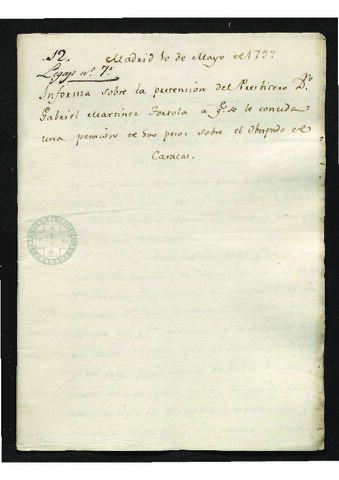 12.
Madrid 10 de Mayo de 1797
Legajo nº 7º
Informa sobre la pretension del Presbitero Dn.
Gabriel Martinez a qe. se le conceda
una pension de 500 pesos sobre el Obispado de
Caracas.